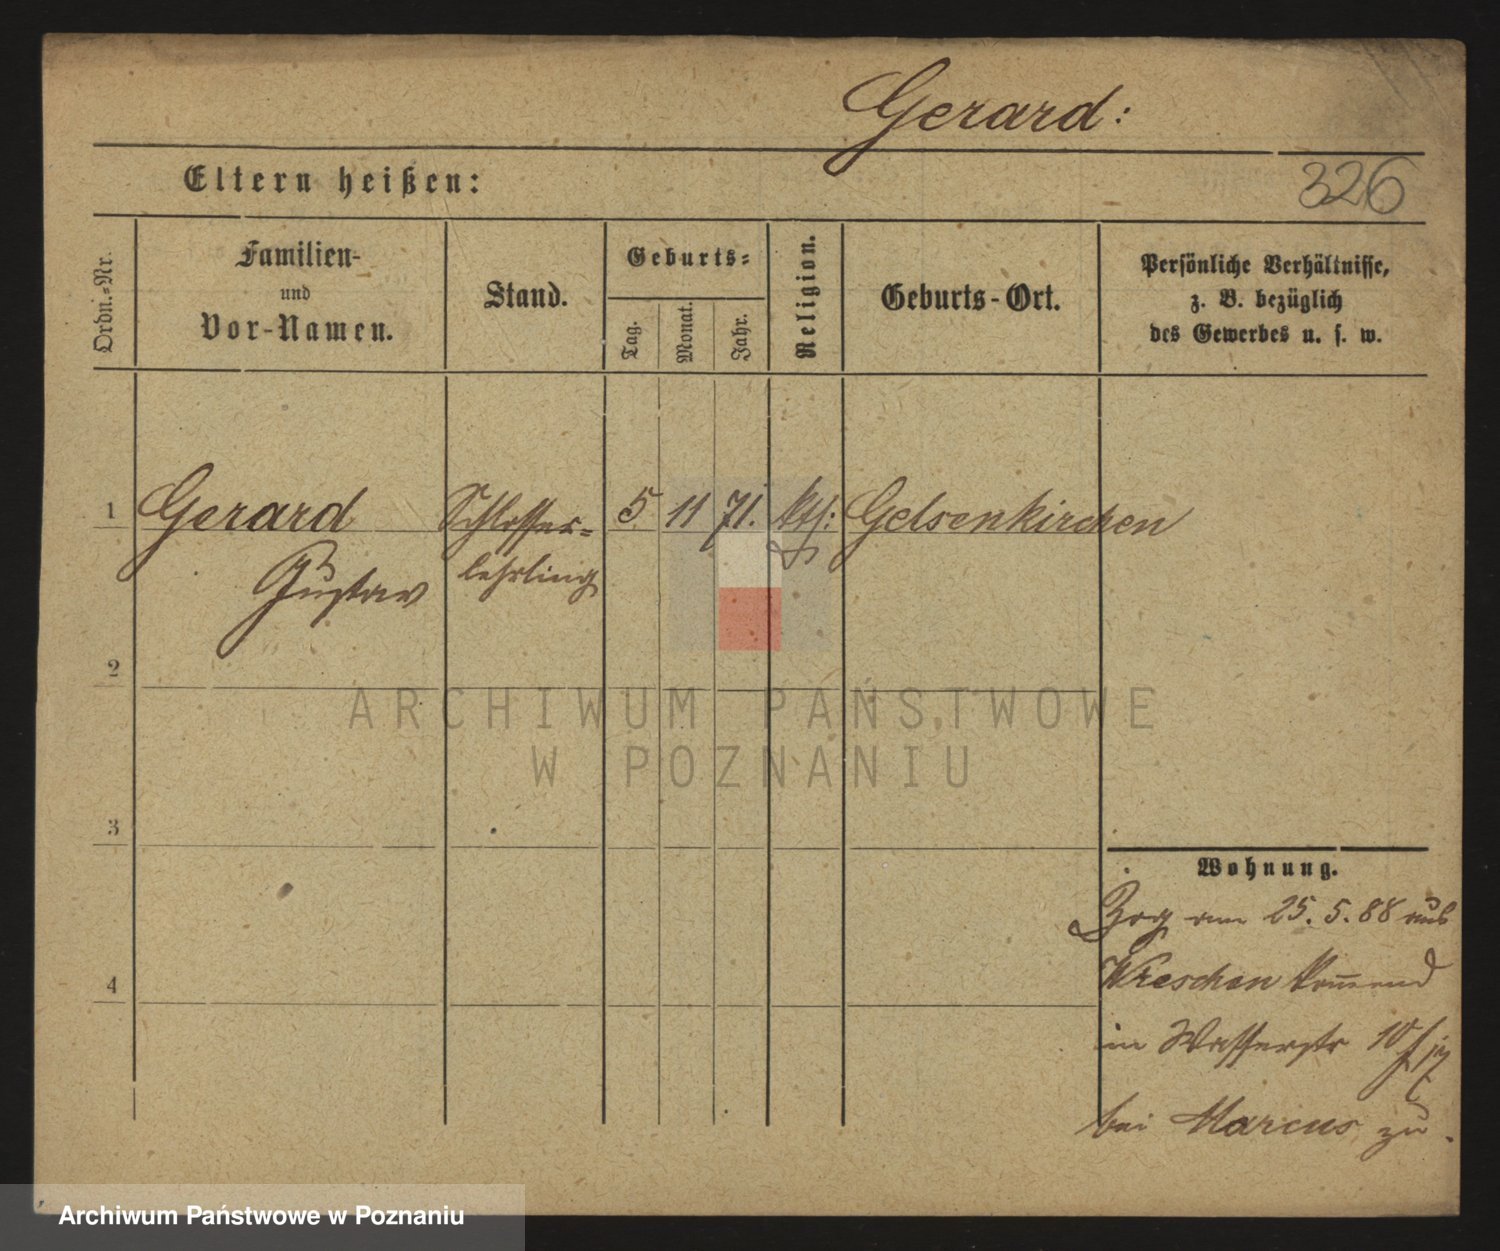 Gerard:
Eltern heißen:
326
Ordn.-Nr.
Familien-
und
Vor-Namen.
Stand.
Geburts-
Tag.
Monat.
Jahr.
Religion.
Geburts-Ort.
Persönliche Verhältnisse,
z. B. bezüglich
des Gewerbes u. s. w.
1 Gerard Schlosser= 5 11 71. kth: Gelsenkirchen
Gustav lehrling
2
3
4
Wohnung.
Zog am 25. 5. 88 aus
Wreschen kom̅end
in Wasserstr 10
bei Marcus zu.
ARCHIWUM PAŃSTWOWE
W POZNANIU
Archiwum Państwowe w Poznaniu